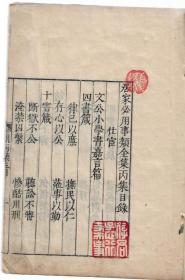 居家必用事類全集丙集目錄
仕宦
文公小學書嘉言篇
四書箴
律己以廉 撫民以仁
存心以公 蒞事以勤
十害箴
斷獄不公 聽訟不審
淹禁囚繫 慘酷用刑